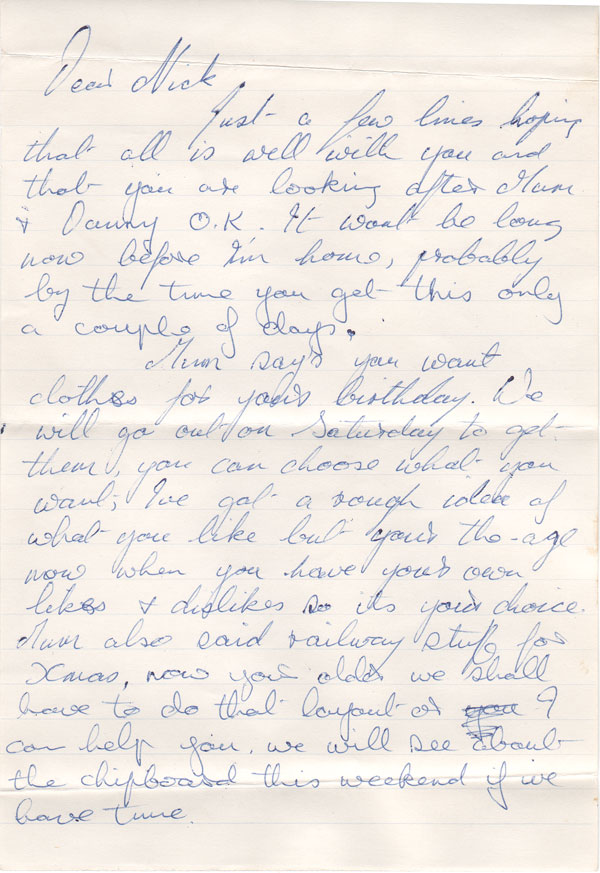 Dear Nick
Just a few lines hoping
that all is well with you and
that you are looking after Mum
& Danny O.K. It wont be long
now before I'm home, probably
by the time you get this only
a couple of days.
Mum says you want
clothes for your birthday. We
will go out on Saturday to get
them, you can choose what you
want, I've got a rough idea of
what you like but your the age
now when you have your own
likes & dislikes so its your choice.
Mum also said railway stuff for
Xmas, now your older we shall
have to do that layout or I
can help you, we will see about
the chipboard this weekend if we
have time.